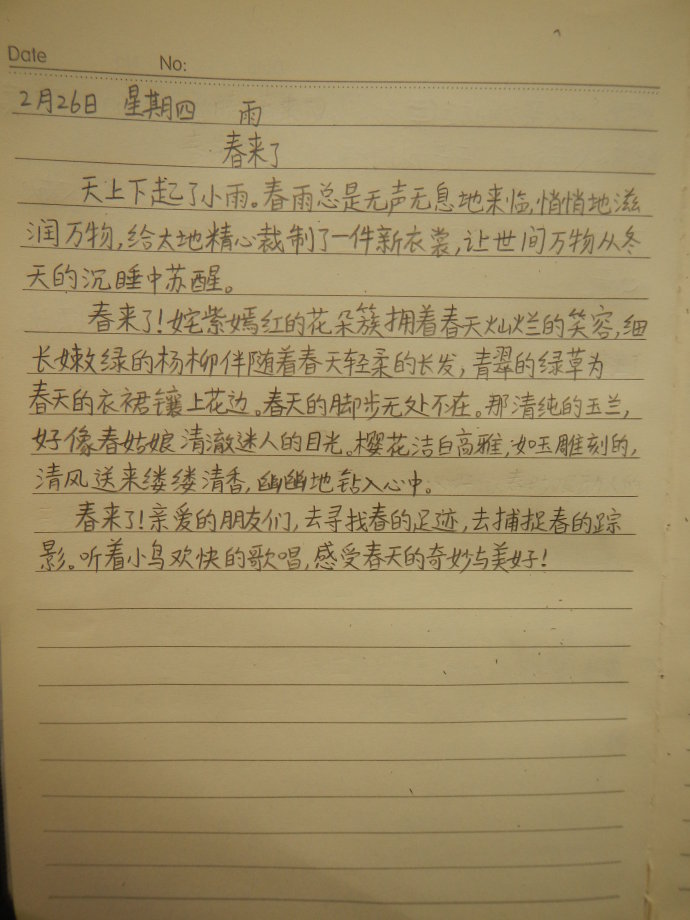 Date
No:
2月26日 星期四 雨
春来了
天上下起了小雨。春雨总是无声无息地来临,悄悄地滋
润万物,给大地精心裁制了一件新衣裳,让世间万物从冬
天的沉睡中苏醒。
春来了!姹紫嫣红的花朵簇拥着春天灿烂的笑容,细
长嫩绿的杨柳伴随着春天轻柔的长发,青翠的绿草为
春天的衣裙镶上花边。春天的脚步无处不在。那清纯的玉兰,
好像春姑娘清澈迷人的目光。樱花洁白高雅,如玉雕刻的,
清风送来缕缕清香,幽幽地钻入心中。
春来了!亲爱的朋友们,去寻找春的足迹,去捕捉春的踪
影。听着小鸟欢快的歌唱,感受春天的奇妙与美好!